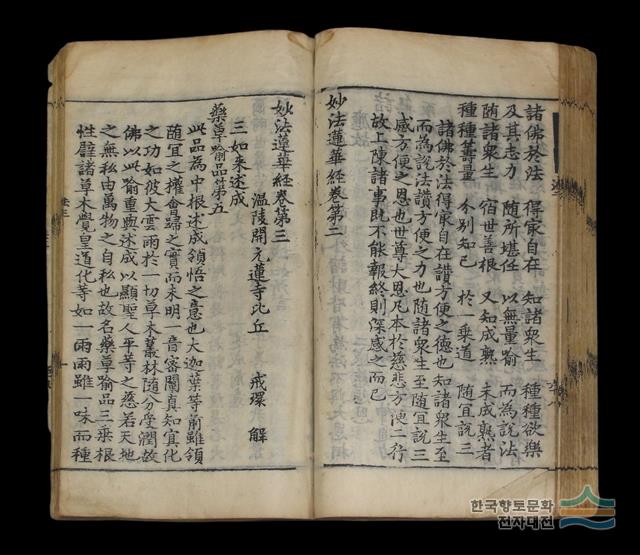 諸佛於法　得㝡自在　知諸衆生　種種欲樂
及其志力　隨所堪任　以無量喻　而為說法
随諸衆生　宿世善根　又知成熟　未成熟者
種種籌量　分別知已　於一乗道　随宜說三
諸佛於法得㝡自在讃方便之德也知諸衆生至
而為說法讃方便之力也随諸衆生至随宜說三
感方便之恩也世尊大恩凡本於慈悲方便二行
故上陳諸事旣不能報終則深感之而已
妙法蓮華經卷第二
妙法蓮華經卷第三
溫陵開元蓮寺比丘　戒環　解
三如來述成
藥草喻品第五
此品為中根述成領悟之意也大迦葉等前雖領
随宜之權會歸之實而未明一音密闡真知冥化
之功如彼大雲雨於一切草木叢林随分受潤故
佛以此喻重與述成以顯聖人平等之慈若天地
之無私由萬物之自私也故名藥草喻品三乗根
性譬諸草木覺皇道化等如一雨雨雖一味而種
한국향토문화
전자대전